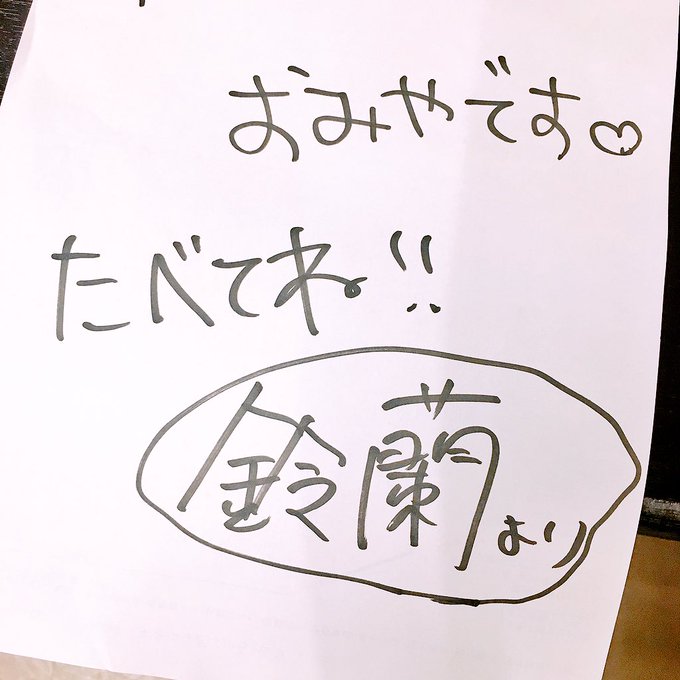 おみやです♡
たべてね!!
鈴蘭より